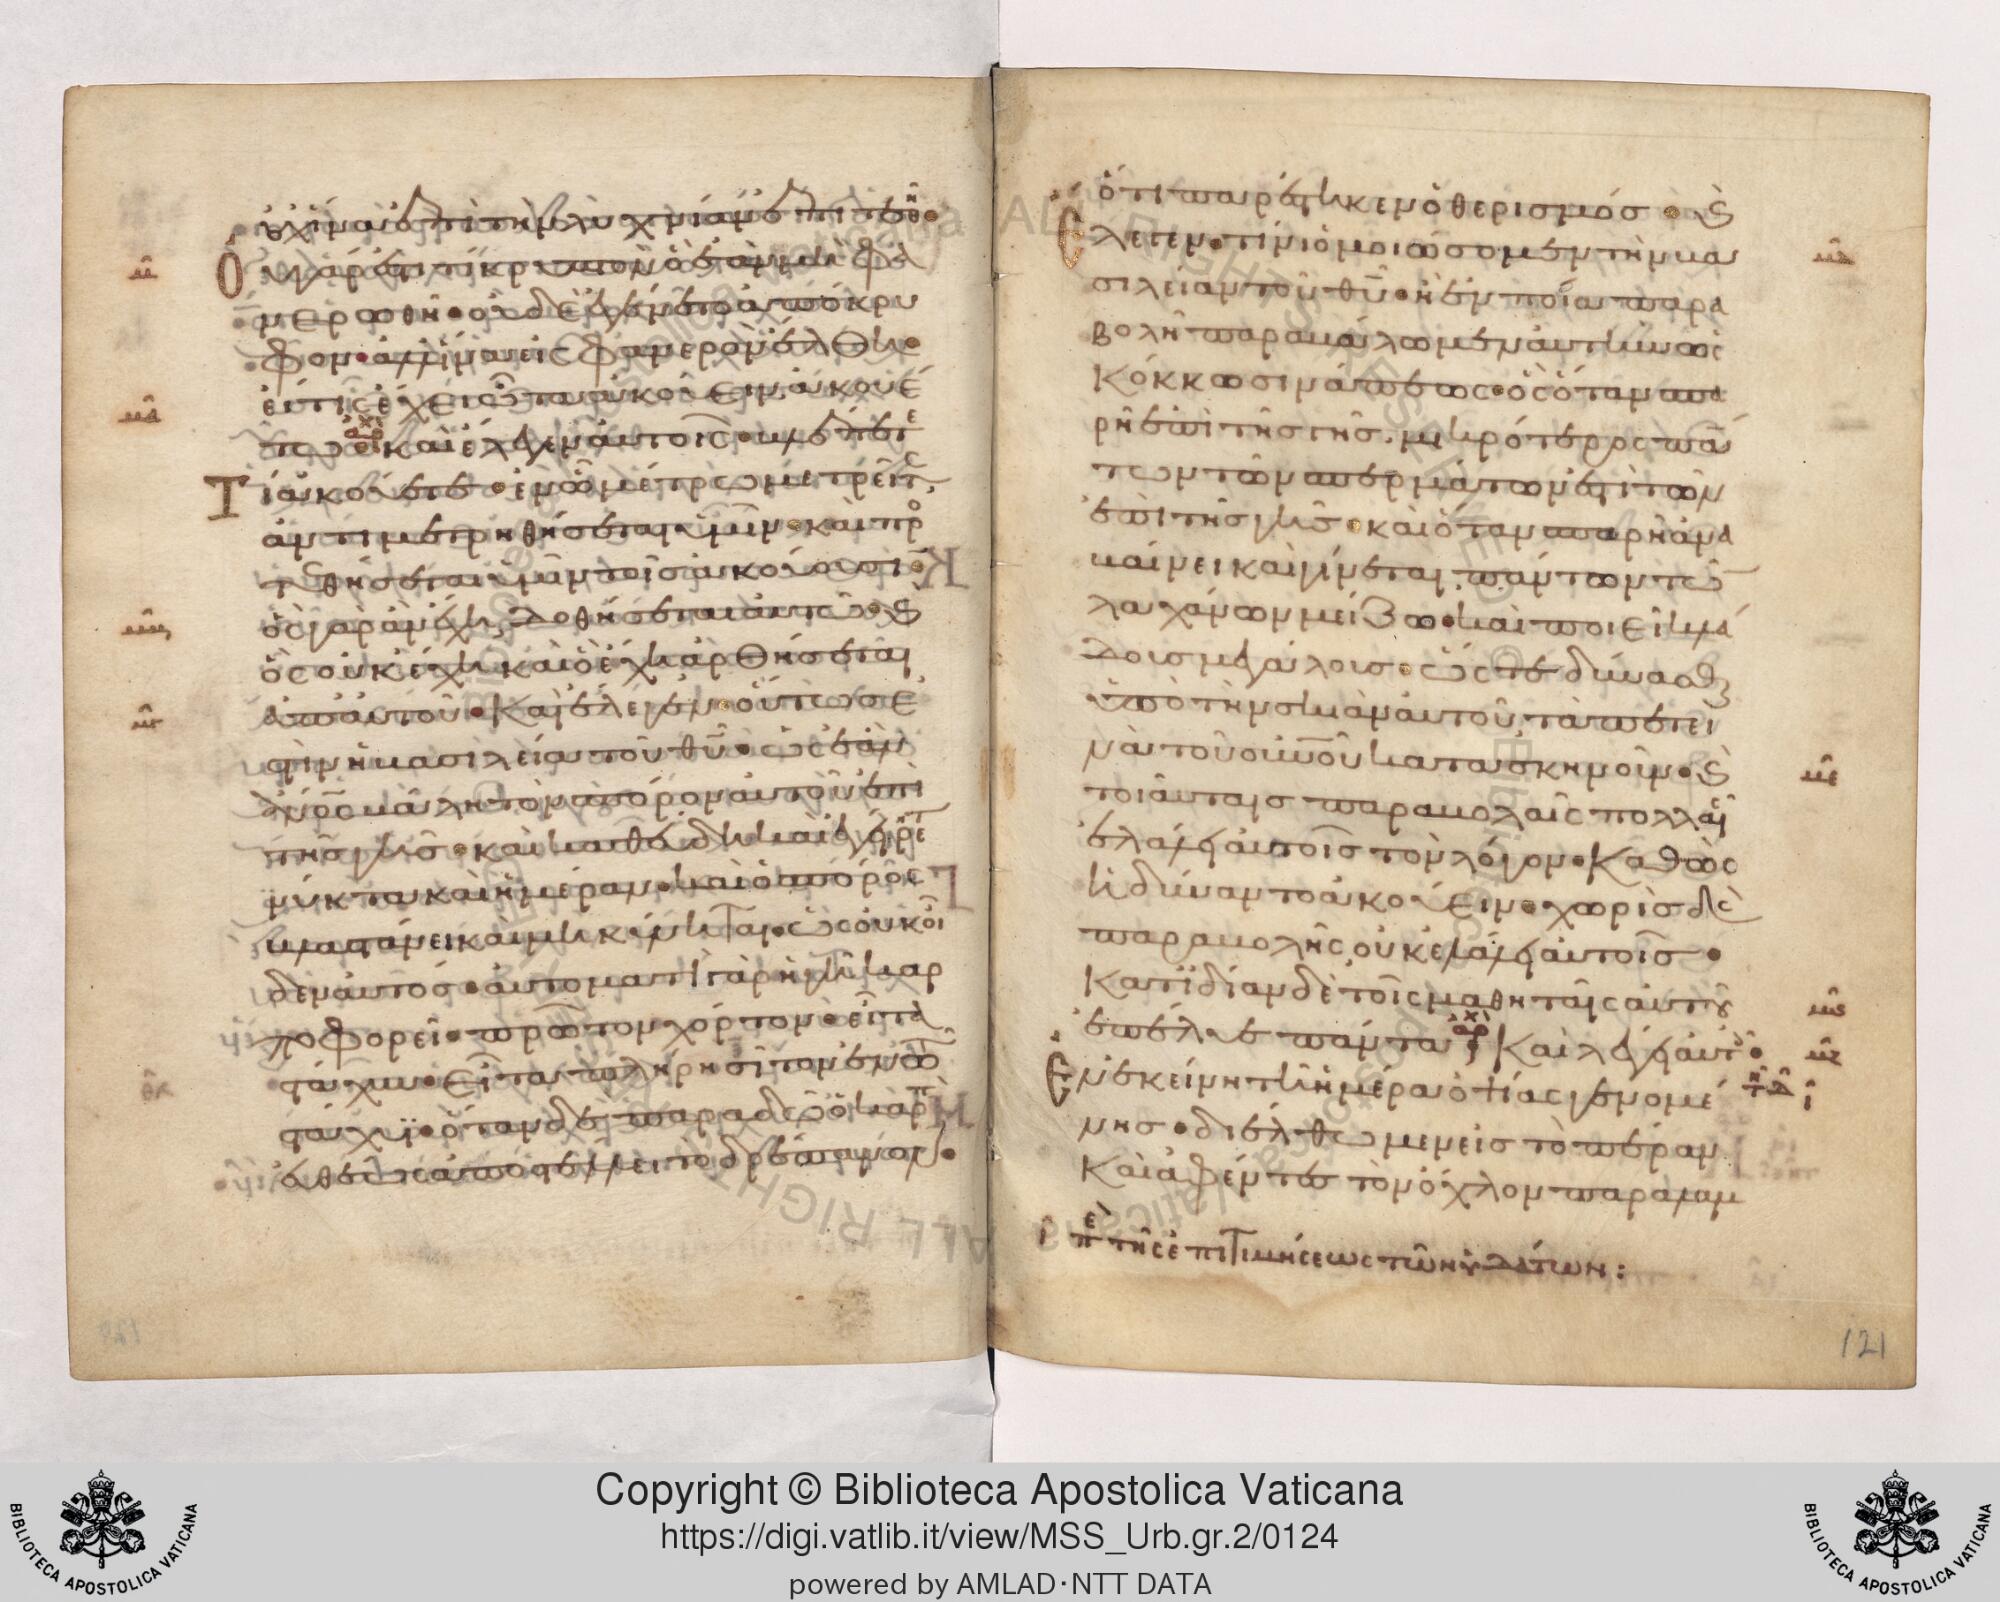 οὐχ ἵνα ἐπὶ τὴν λυχνίαν ἐπιτεθῆ·
οὐ γάρ ἐστί τι κρυπτὸν ὃ ἐὰν μὴ φα
νερωθῆ· οὐδὲ ἐγένετο ἀπόκρυ
φον· ἀλλ' ἵνα εἰς φανερὸν ἔλθη·
εἴ τις ἔχει ὦτα ἀκούειν ἀκουέ
τω· καὶ ἔλεγεν αὐτοῖς· βλέπετε
τί ἀκούετε· ἐν ᾧ μέτρω μετρεῖτε
ἀντιμετρηθήσεται ὑμῖν· καὶ προσ
τεθήσεται ὑμῖν τοῖς ἀκούουσιν·
ὃς γὰρ ἂν ἔχη δοθήσεται αὐτῶ· καὶ
ὃς οὐκ ἔχει καὶ ὃ ἔχει ἀρθήσεται
ἀπ' αὐτοῦ· Καὶ ἔλεγεν· οὕτως ἐ
στὶν ἡ βασιλεία τοῦ θυ· ὡς ἐὰν
ἄνος βάλη τὸν σπόρον αὐτοῦ ἐπὶ
τῆς γῆς· καὶ καθεύδη καὶ ἐγείρετ
νύκτα καὶ ἡμέραν· καὶ ὁ σπόρος
βλαστάνει καὶ μηκύνηται· ὡς οὐκ οἶ
δεν αὐτός· αὐτομάτη γὰρ ἡ γῆ καρ
ποφορεῖ· πρῶτον χόρτον· εἶτα
στάχυν· εἶτα πλήρη σῖτον ἐν τῶ
στάχυϊ· ὅταν δὲ παραδῶ ὁ καρπ
εὐθέως ἀποστέλλει τὸ δρέπανον·
ὅτι παρέστηκεν ὁ θερισμός· καὶ
ἔλεγεν· τίνι ὁμοιώσομεν τὴν βα
σιλείαν τοῦ θυ· ἢ ἐν ποία παρα
βολῆ παραβάλωμεν αὐτὴν· ὡς
κόκκω σινάπεως· ὃς ὅταν σπα
ρῆ ἐπὶ τῆς γῆς, μικρότερος πάν
των τῶν σπερμάτων ἐστὶ τῶν
ἐπὶ τῆς γῆς· καὶ ὅταν σπαρῆ ἀνα
βαίνει καὶ γίνεται πάντων τῶν
λαχάνων μείζων· καὶ ποιεῖ κλά
δους μεγάλους· ὥστε δύνασθαι
ὑπὸ τὴν σκιὰν αὐτοῦ τὰ πετει
νὰ τοῦ οὐνοῦ κατασκηνοῦν· καὶ
τοιαύταις παραβολαῖς πολλαῖς
ἐλάλει αὐτοῖς τὸν λόγον· Καθὼς
ἠδύναντο ἀκούειν· χωρὶς δὲ
παραβολῆς οὐκ ἐλάλει αὐτοῖς·
Κατϊδίαν δὲ τοῖς μαθηταῖς αὐτοῦ
ἐπέλυε πάντα· Καὶ λέγει αὐτοῖς·
ἐν ἐκείνη τῆ ἡμέρα ὀψίας γενομέ
νης· διέλθωμεν εἰς τὸ πέραν
Καὶ ἀφέντες τὸν ὄχλον παραλαμ
ῑ πε τῆς ἐπιτιμήσεως τῶν ὑδάτων:
121
Copyright © Biblioteca Apostolica Vaticana
https://digi.vatlib.it/view/MSS_Urb.gr.2/0124
powered by AMLAD·NTT DATA
BIBLIOTECA APOSTOLICA VATICANA
BIBLIOTECA APOSTOLICA VATICANA